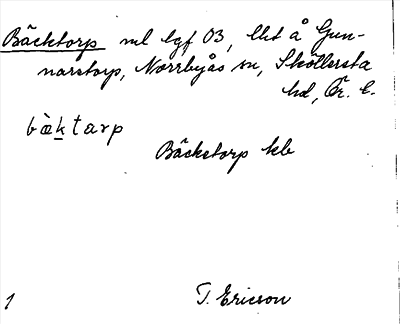 Bäcktorp ml lgf 03, lht å Gun-
narstorp, Norrbyås sn, Sköllersta
hd, Ör. l.
bæ̀k̲tarp
Bäckstorp kb
1
T. Ericson